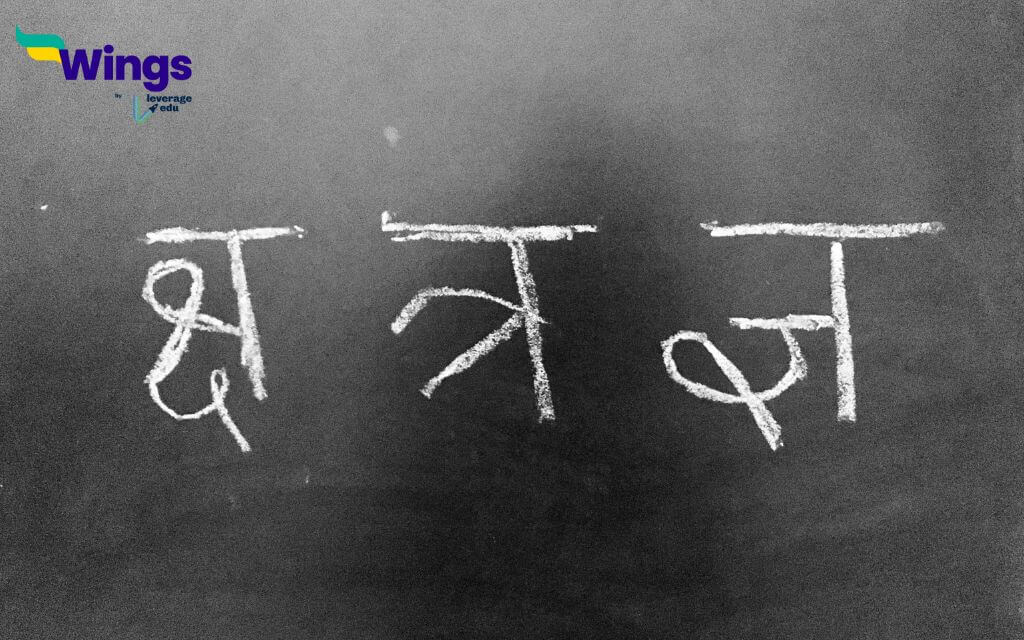 Wings
by leverage
edu
क्ष त्र ज्ञ